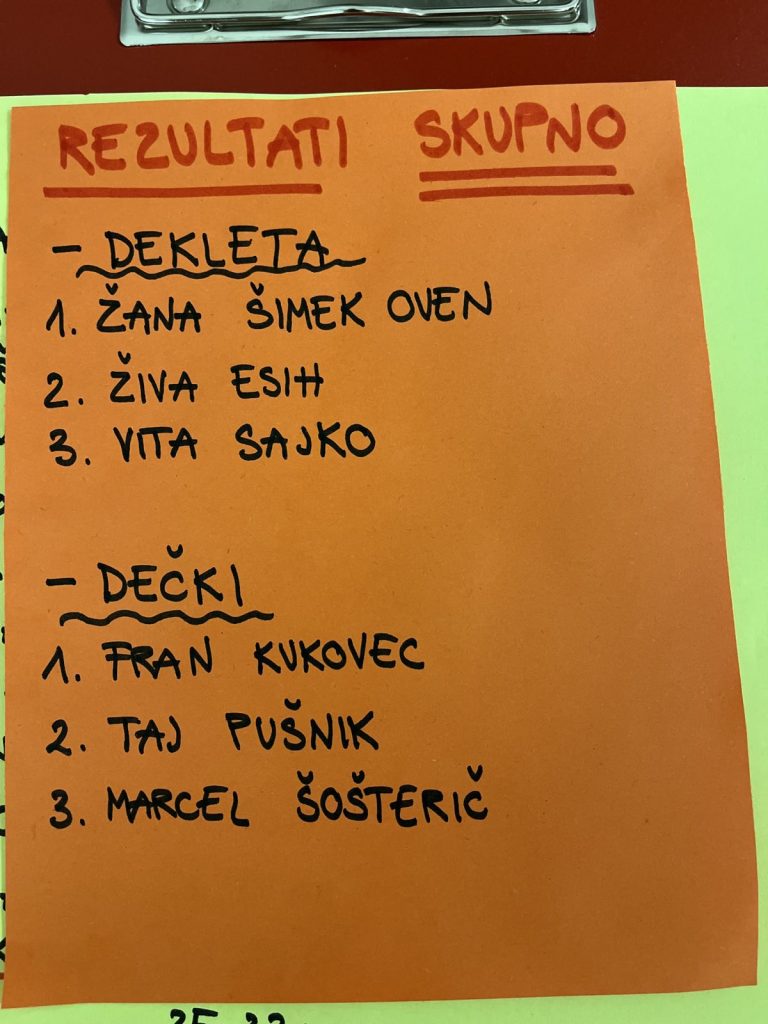 REZULTATI SKUPNO
- DEKLETA
1. ŽANA ŠIMEK OVEN
2. ŽIVA ESIH
3. VITA SAJKO
- DEČKI
1. FRAN KUKOVEC
2. TAJ PUŠNIK
3. MARCEL ŠOŠTERIČ